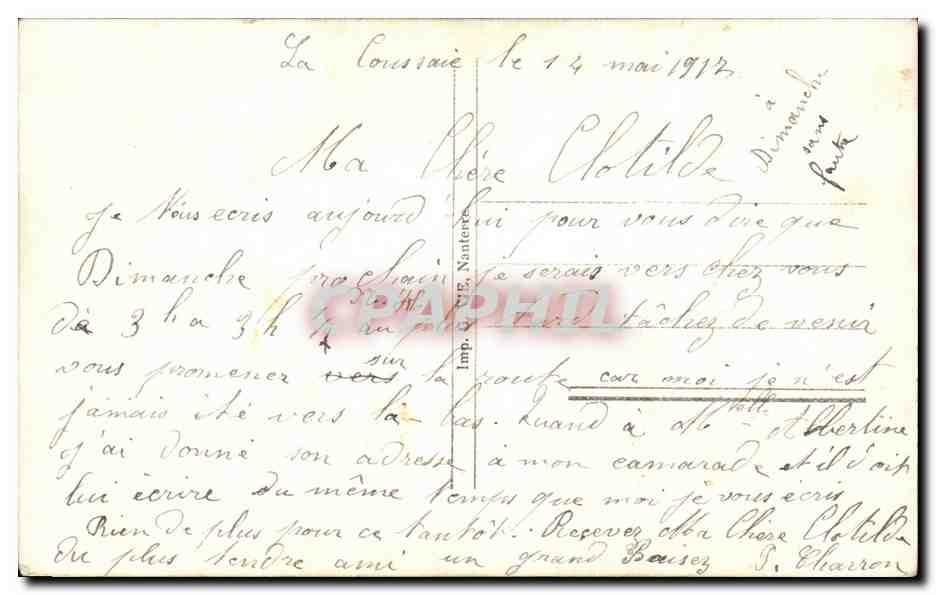 La Coussaie le 14 mai 1917
à
Dimanche
sans
faute
Ma Chère Clotilde
Je Vous ecris aujourd'hui pour vous dire que
Dimanche prochain je serais vers chez vous
de 3h a 3h ½ au plus tard tâchez de venir
vous promener vers sur la route car moi je n'est
jamais été vers la bas. Quand à Melle Albertine
j'ai donné son adresse à mon camarade et il doit
lui écrire du même temps que moi je vous écris
Rien de plus pour ce tantôt. Recevez Ma Chère Clotilde
du plus tendre ami un grand Baisez P. Charron
Imp. Nanterre
CPAPHIL